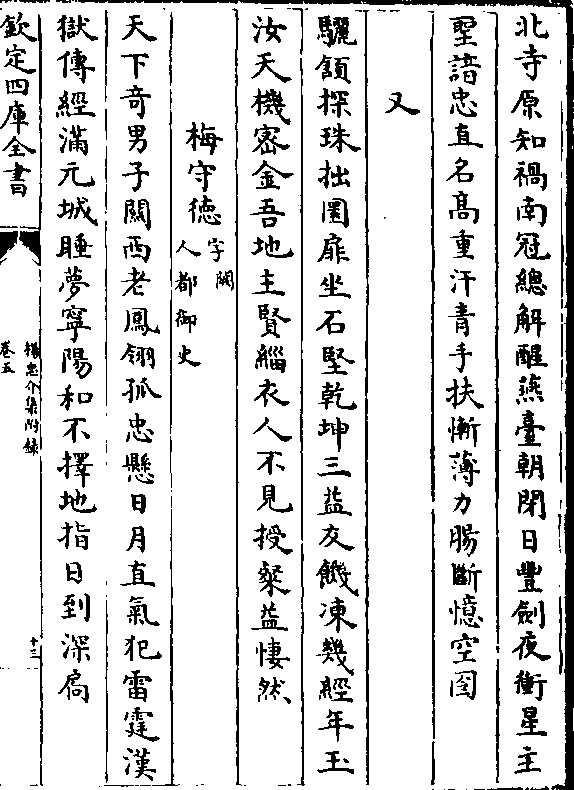 北寺原知禍南冠總解醒燕臺朝閉日豐劍夜衝星主
聖諳忠直名髙重汗青手扶慚薄力腸斷憶空囹
又
驪頷探珠拙圜扉坐石堅乾坤三益友饑凍幾經年玉
汝天機密金吾地主賢緇衣人不見授粲益悽然
梅守德字闕
人都御史
天下奇男子闗西老鳳翎孤忠懸日月直氣犯雷霆漢
獄傳經滿元城睡夢寧陽和不擇地指日到深扃
欽定四庫全書
楊忠介集附錄
卷五
十三